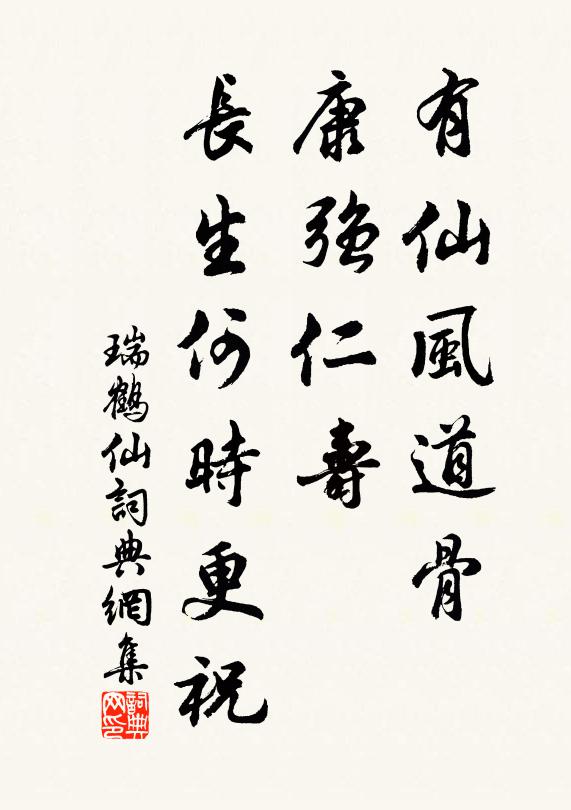 有仙風道骨
康強仁壽
長生何時更祝
瑞鶴仙詞典網集
詞典网印